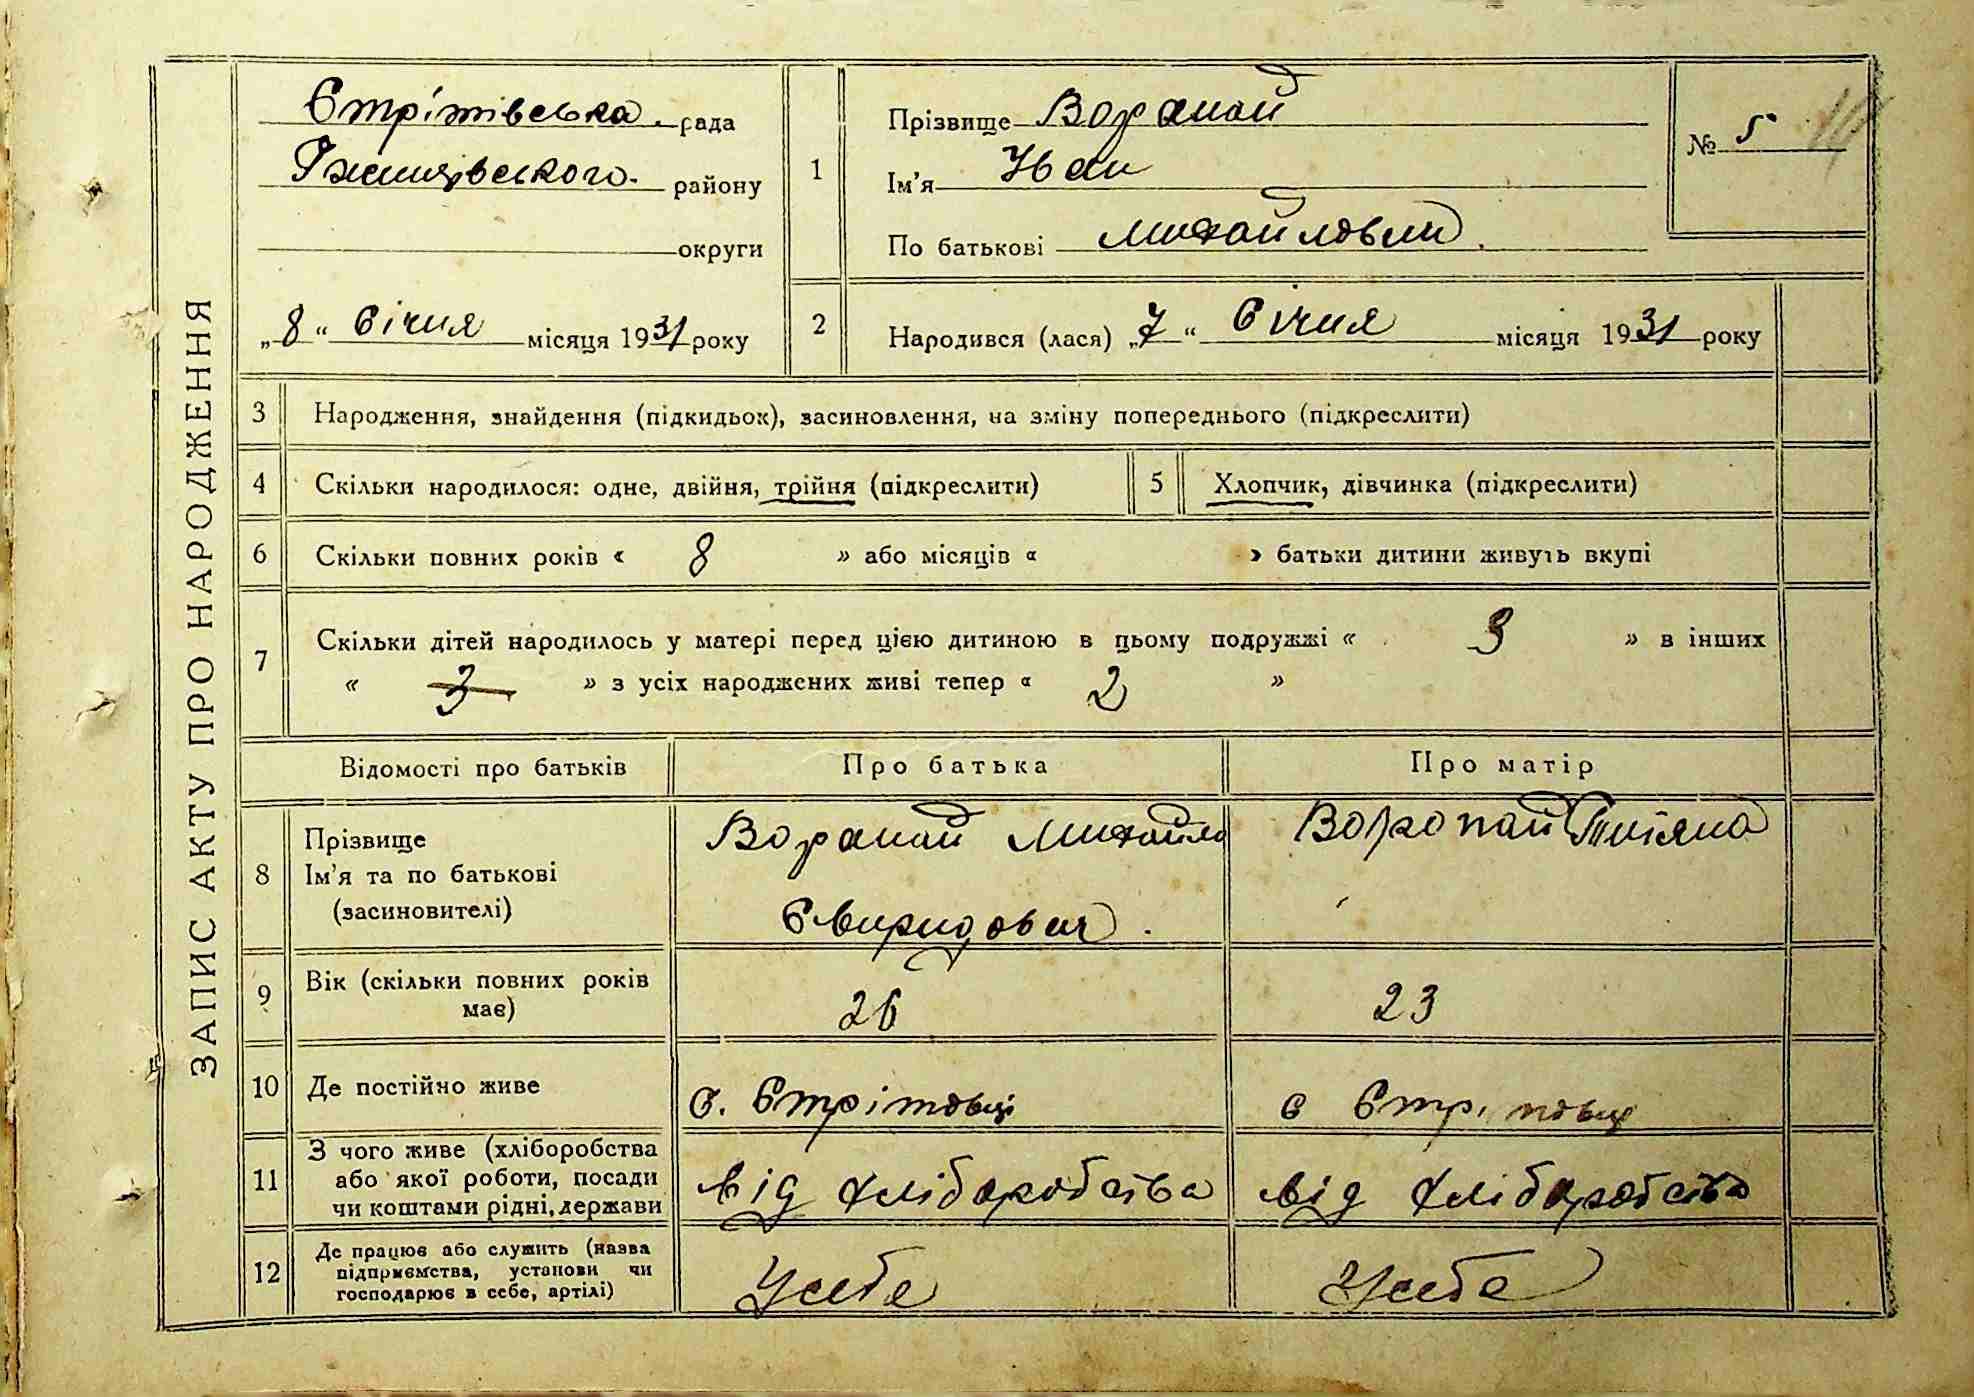 ЗАПИС АКТУ ПРО НАРОДЖЕННЯ
Стрітівська рада
Ржищівського району
округи
„8“ Січня місяця 1931 року
1
Прізвище Воропай
Ім'я Иван
По батькові Михайлович
№ 5
2
Народився (лася) „7“ Січня місяця 1931 року
3 Народження, знайдення (підкидьок), засиновлення, на зміну попереднього (підкреслити)
4 Скільки народилося: одне, двійня, трійня (підкреслити)
5 Хлопчик, дівчинка (підкреслити)
6 Скільки повних років « 8 » або місяців « » батьки дитини живуть вкупі
7 Скільки дітей народилось у матері перед цією дитиною в цьому подружжі « 3 » в інших
« 3 » з усіх народжених живі тепер « 2 »
Відомості про батьків
Про батька
Про матір
8
Прізвище
Ім'я та по батькові
(засиновителі)
Воропай Михайло
Свиридович.
Воропай Титяна
9
Вік (скільки повних років
має)
26
23
10 Де постійно живе
с. Стрітовці
с Стрітовці
11
З чого живе (хліборобства
або якої роботи, посади
чи коштами рідні, держави
від хліборобства
від хліборобства
12
Де працює або служить (назва
підприємства, установи чи
господарює в себе, артілі)
Усебе
Усебе